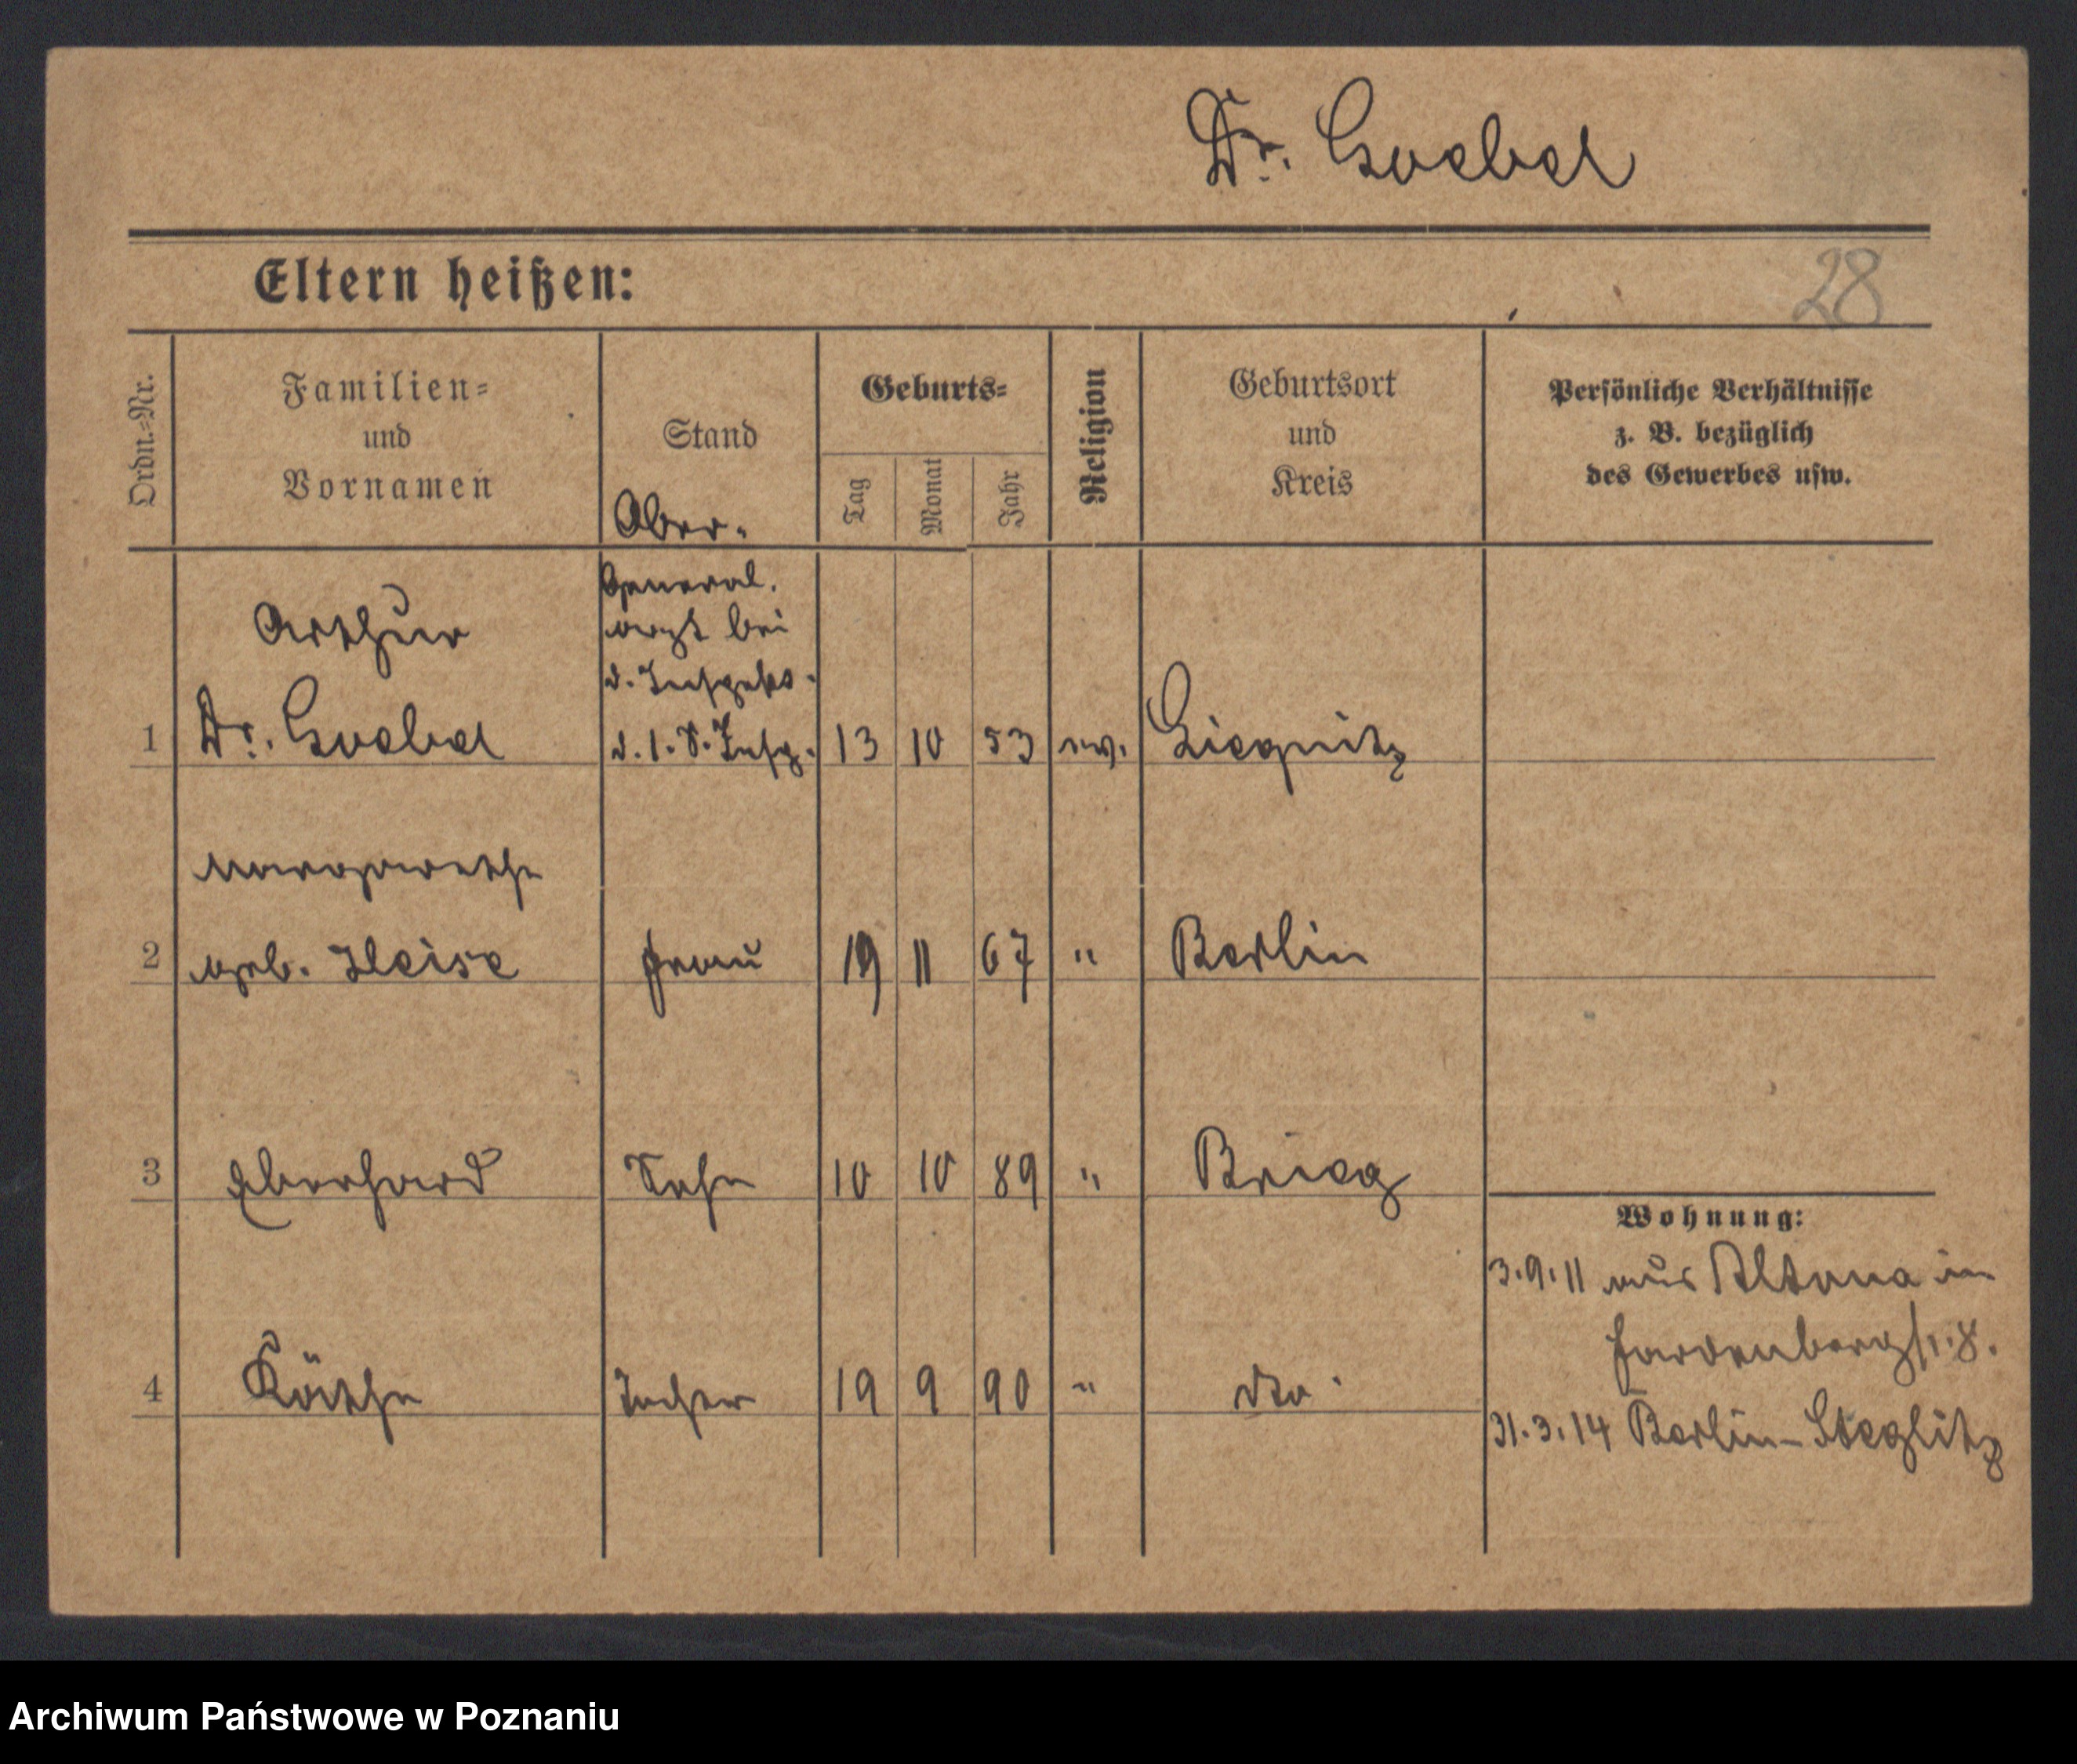 Dr. Goebel
Eltern heißen:
28
Ordn.-Nr.
Familien-
und
Vornamen
Stand
Geburts-
Tag
Monat
Jahr
Religion
Geburtsort
und
Kreis
Persönliche Verhältnisse
z. B. bezüglich
des Gewerbes usw.
Ober-
General-
Arthur
arzt bei
d.
1 Dr. Goebel
d. 1. S. Insp. 13 10 53 ev. Liegnitz
Margarethe
2 geb. Heise Frau 19 11 67 " Berlin
3 Eberhard Sohn 10 10 89 " Brieg
Wohnung:
3.9.11 aus Altona in
Hardenbergstr. 8.
4 Käthe Tochter 19 9 90 " dto.
31.3.14 Berlin-Steglitz
Archiwum Państwowe w Poznaniu